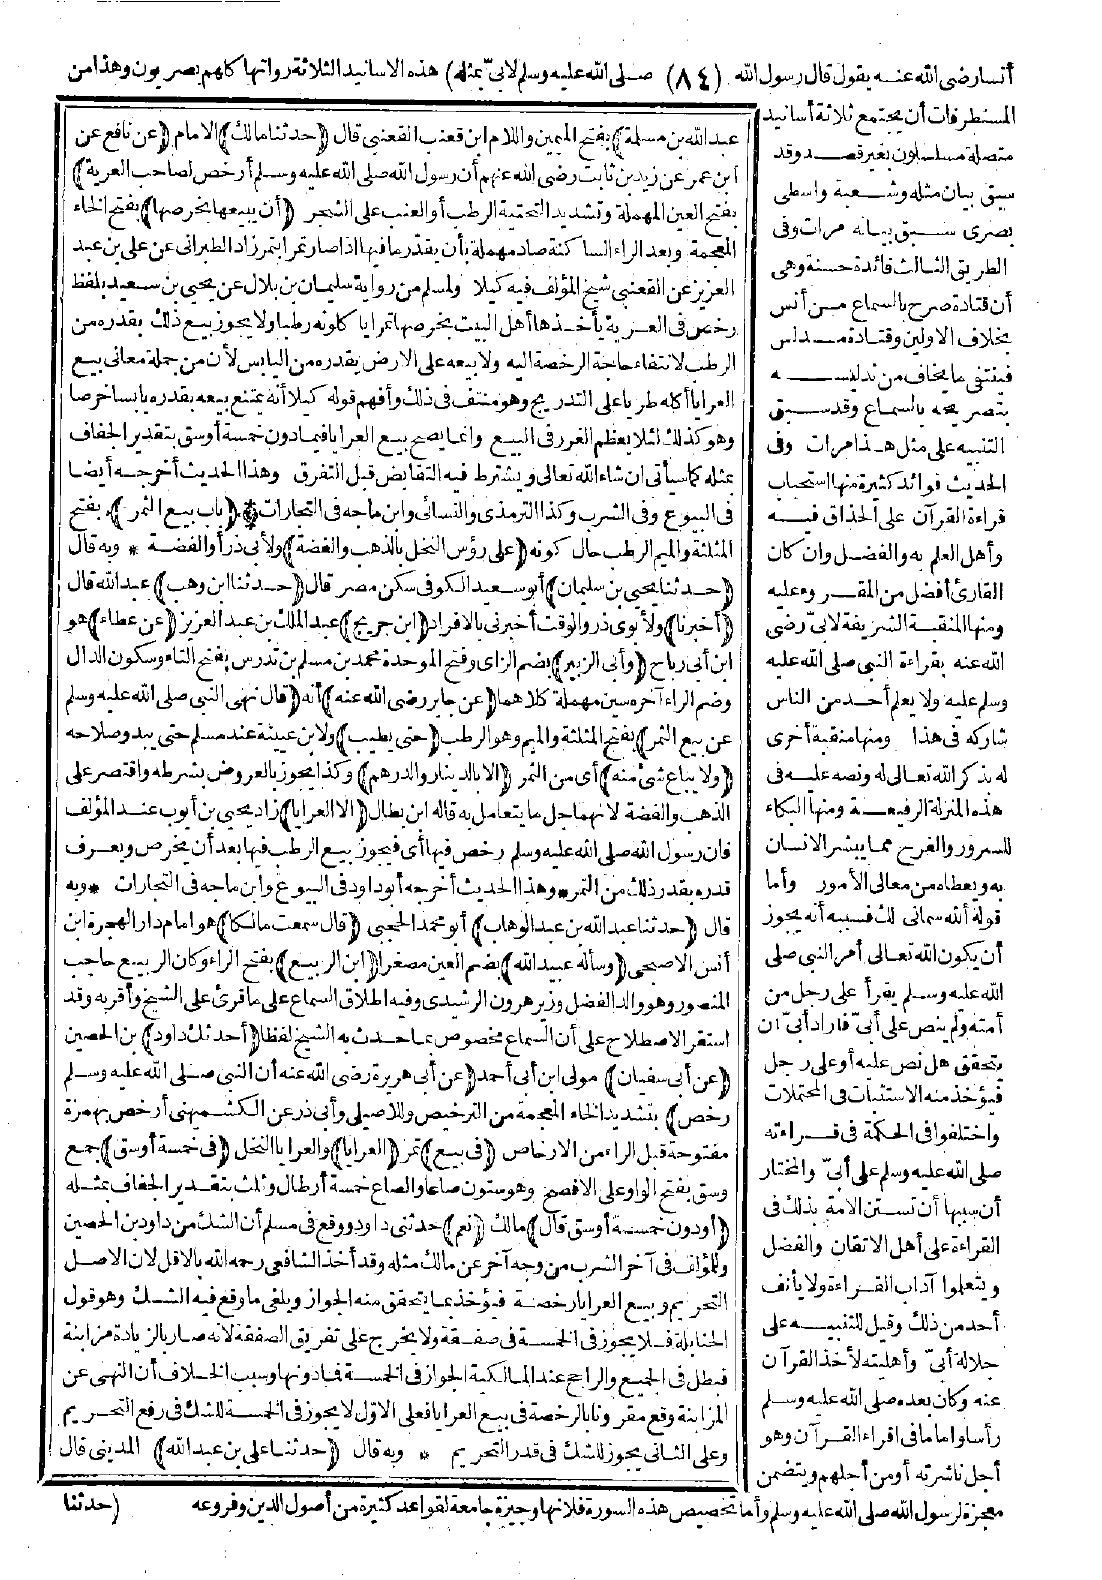 أنسا رضى الله عنه يقول قال رسول الله (٨٤) صلى الله عليه وسلم لابىّ بمثله) هذه الاسانيد الثلاثة رواتها كلهم بصريون وهذا من
المستطرفات أن يجتمع ثلاثة أسانيد
متصلة مسلسلون بغير قصد وقد
سبق بيان مثله وشعبة واسطى
بصرى سبق بيانه مرات وفى
الطريق الثالث فائدة حسنة وهى
أن قتادة صرح بالسماع من أنس
بخلاف الاولين وقتادة مدلس
فينتفى ما يخاف من تدليسه
بتصريحه بالسماع وقد سبق
التنبيه على مثل هذا مرات وفى
الحديث فوائد كثيرة منها استحباب
قراءة القرآن على الحذاق فيه
وأهل العلم به والفضل وان كان
القارئ أفضل من المقروء عليه
ومنها المنقبة الشريفة لابى رضى
الله عنه بقراءة النبى صلى الله عليه
وسلم عليه ولا يعلم أحد من الناس
شاركه فى هذا ومنها منقبة أخرى
له بذكر الله تعالى له ونصه عليه فى
هذه المنزلة الرفيعة ومنها البكاء
للسرور والفرح مما يبشر الانسان
به ويعطاه من معالى الأمور وأما
قوله ألله سمانى لك فسببه أنه يجوز
أن يكون الله تعالى أمر النبى صلى
الله عليه وسلم يقرأ على رجل من
أمته ولم ينص على أبىّ فاراد أبىّ ان
يتحقق هل نص عليه أو على رجل
فيؤخذ منه الاستثبات فى المحتملات
واختلفوا فى الحكمة فى قراءته
صلى الله عليه وسلم على أبىّ والمختار
أن سببها أن تستن الامة بذلك فى
القراءة على أهل الاتقان والفضل
ويتعلموا آداب القراءة ولا يأنف
أحد من ذلك وقيل للتنبيه على
جلالة أبىّ وأهليته لأخذ القرآن
عنه وكان بعده صلى الله عليه وسلم
رأسا واماما فى اقراء القرآن وهو
أجل ناشرته أو من أجلهم ويتضمن
معجزة لرسول الله صلى الله عليه وسلم وأما تخصيص هذه السورة فلانها وجيزة جامعة لقواعد كثيرة من أصول الدين وفروعه
عبد الله بن مسلمة) بفتح الميمين واللام ابن قعنب القعنبى قال (حدثنا مالك) الامام (عن نافع عن
ابن عمر عن زيد بن ثابت رضى الله عنهم أن رسول الله صلى الله عليه وسلم أرخص لصاحب العرية)
بفتح العين المهملة وتشديد التحتية الرطب أو العنب على الشجر (أن يبيعها بخرصها) بفتح الخاء
المعجمة وبعد الراء الساكنة صاد مهملة بأن يقدر ما فيها اذا صار تمرا بتمر زاد الطبرانى عن على بن عبد
العزيز عن القعنبى شيخ المؤلف فيه كيلا ولمسلم من رواية سليمان بن بلال عن يحيى بن سعيد بلفظ
رخص فى العرية يأخذها أهل البيت بخرصها تمرا يأكلونه رطبا ولا يجوز بيع ذلك بقدره من
الرطب لانتفاء حاجة الرخصة اليه ولا بيعه على الارض بقدره من اليابس لأن من جملة معانى بيع
العرايا أكله طريا على التدريج وهو منتف فى ذلك وأفهم قوله كيلا أنه يمتنع بيعه بقدره يابسا خرصا
وهو كذلك لئلا يعظم الغرر فى البيع وانما يصح بيع العرايا فيما دون خمسة أوسق بتقدير الجفاف
بمثله كما سيأتى ان شاء الله تعالى ويشترط فيه التقابض قبل التفرق وهذا الحديث أخرجه أيضا
فى البيوع وفى الشرب وكذا الترمذى والنسائى وابن ماجه فى التجارات * (باب بيع الثمر) بفتح
المثلثة والميم الرطب حال كونه (على رؤس النخل بالذهب والفضة) ولأبى ذر أو الفضة * وبه قال
(حدثنا يحيى بن سليمان) أبو سعيد الكوفى سكن مصر قال (حدثنا ابن وهب) عبد الله قال
(أخبرنا) ولأبوى ذر والوقت أخبرنى بالافراد (ابن جريج) عبد الملك بن عبد العزيز (عن عطاء) هو
ابن أبى رباح (وأبى الزبير) بضم الزاى وفتح الموحدة محمد بن مسلم بن تدرس بفتح التاء وسكون الدال
وضم الراء آخره سين مهملة كلاهما (عن جابر رضى الله عنه) أنه (قال نهى النبى صلى الله عليه وسلم
عن بيع الثمر) بفتح المثلثة والميم وهو الرطب (حتى يطيب) ولابن عيينة عند مسلم حتى يبدو صلاحه
(ولا يباع شئ منه) أى من الثمر (الا بالدينار والدرهم) وكذا يجوز بالعروض بشرطه واقتصر على
الذهب والفضة لانهما جل ما يتعامل به قاله ابن بطال (الا العرايا) زاد يحيى بن أيوب عند المؤلف
فان رسول الله صلى الله عليه وسلم رخص فيها أى فيجوز بيع الرطب فيها بعد أن يخرص ويعرف
قدره بقدر ذلك من التمر * وهذا الحديث أخرجه أبو داود فى البيوع وابن ماجه فى التجارات * وبه
قال (حدثنا عبد الله بن عبد الوهاب) أبو محمد الحجبى (قال سمعت مالكا) هو امام دار الهجرة ابن
أنس الاصبحى (وسأله عبيد الله) بضم العين مصغرا (ابن الربيع) بفتح الراء وكان الربيع حاجب
المنصور وهو والد الفضل وزير هرون الرشيدى وفيه اطلاق السماع على ما قرئ على الشيخ وأقر به وقد
استقر الاصطلاح على أن السماع مخصوص بما حدث به الشيخ لفظا (أحدثك داود) بن الحصين
(عن أبى سفيان) مولى ابن أبى أحمد (عن أبى هريرة رضى الله عنه أن النبى صلى الله عليه وسلم
رخص) بتشديد الخاء المعجمة من الترخيص وللاصيلى وأبى ذر عن الكشميهنى أرخص بهمزة
مفتوحة قبل الراء من الارخاص (فى بيع) تمر (العرايا) والعرايا النخل (فى خمسة أوسق) جمع
وسق بفتح الواو على الافصح وهو ستون صاعا والصاع خمسة أرطال وثلث بتقدير الجفاف بمثله
(أو دون خمسة أوسق قال) مالك (نعم) حدثنى داود ووقع فى مسلم أن الشك من داود بن الحصين
وللمؤلف فى آخر الشرب من وجه آخر عن مالك مثله وقد أخذ الشافعى رحمه الله بالاقل لان الاصل
التحريم وبيع العرايا رخصة فيؤخذ بما يتحقق منه الجواز ويلغى ما وقع فيه الشك وهو قول
الحنابلة فلا يجوز فى الخمسة فى صفقة ولا يخرج على تفريق الصفقة لانه صار بالزيادة مزابنة
فبطل فى الجميع والراجح عند المالكية الجواز فى الخمسة فما دونها وسبب الخلاف أن النهى عن
المزابنة وقع مقرونا بالرخصة فى بيع العرايا فعلى الاول لا يجوز فى الخمسة للشك فى رفع التحريم
وعلى الثانى يجوز للشك فى قدر التحريم * وبه قال (حدثنا على بن عبد الله) المدينى قال
(حدثنا